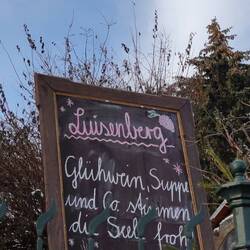 Luisenberg
Glühwein, Suppe
und Co stimmen
die Seele froh